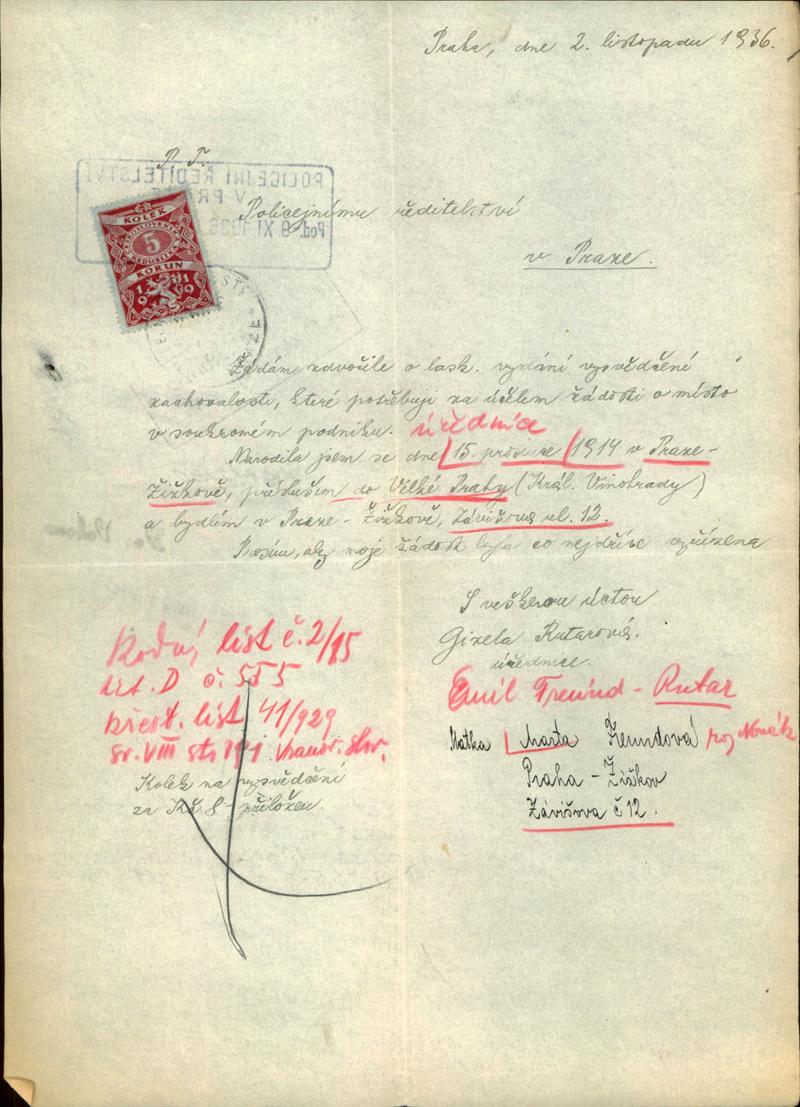 Praha, dne 2. listopadu 1936.
P. T.
POLICEJNÍ ŘEDITELSTVÍ
V PRAZE
Pod. 9 XI 1936
KOLEK
5
KORUN
1919
Policejnímu ředitelství
v Praze.
Žádám zdvořile o lask. vydání vysvědčení
zachovalosti, které potřebuji za účelem žádosti o místo
v soukromém podniku. úřednice
Narodila jsem se dne 15. prosince 1914 v Praze-
Žižkově, přísluším do Velké Prahy (Král. Vinohrady)
a bydlím v Praze - Žižkově, Závišova ul. 12.
Prosím, aby moje žádost byla co nejdříve vyřízena
S veškerou úctou
Gizela Rutarová.
úřednice.
Rodný list č. 2/15
lit. D č. 555
křest. list 41/929
sv. VIII str 191
Emil Freund - Rutar
Matka Marta Freundová roz Novák
Praha - Žižkov
Závišova č 12.
Kolek na vysvědčení
za Kč 8- přiložen.